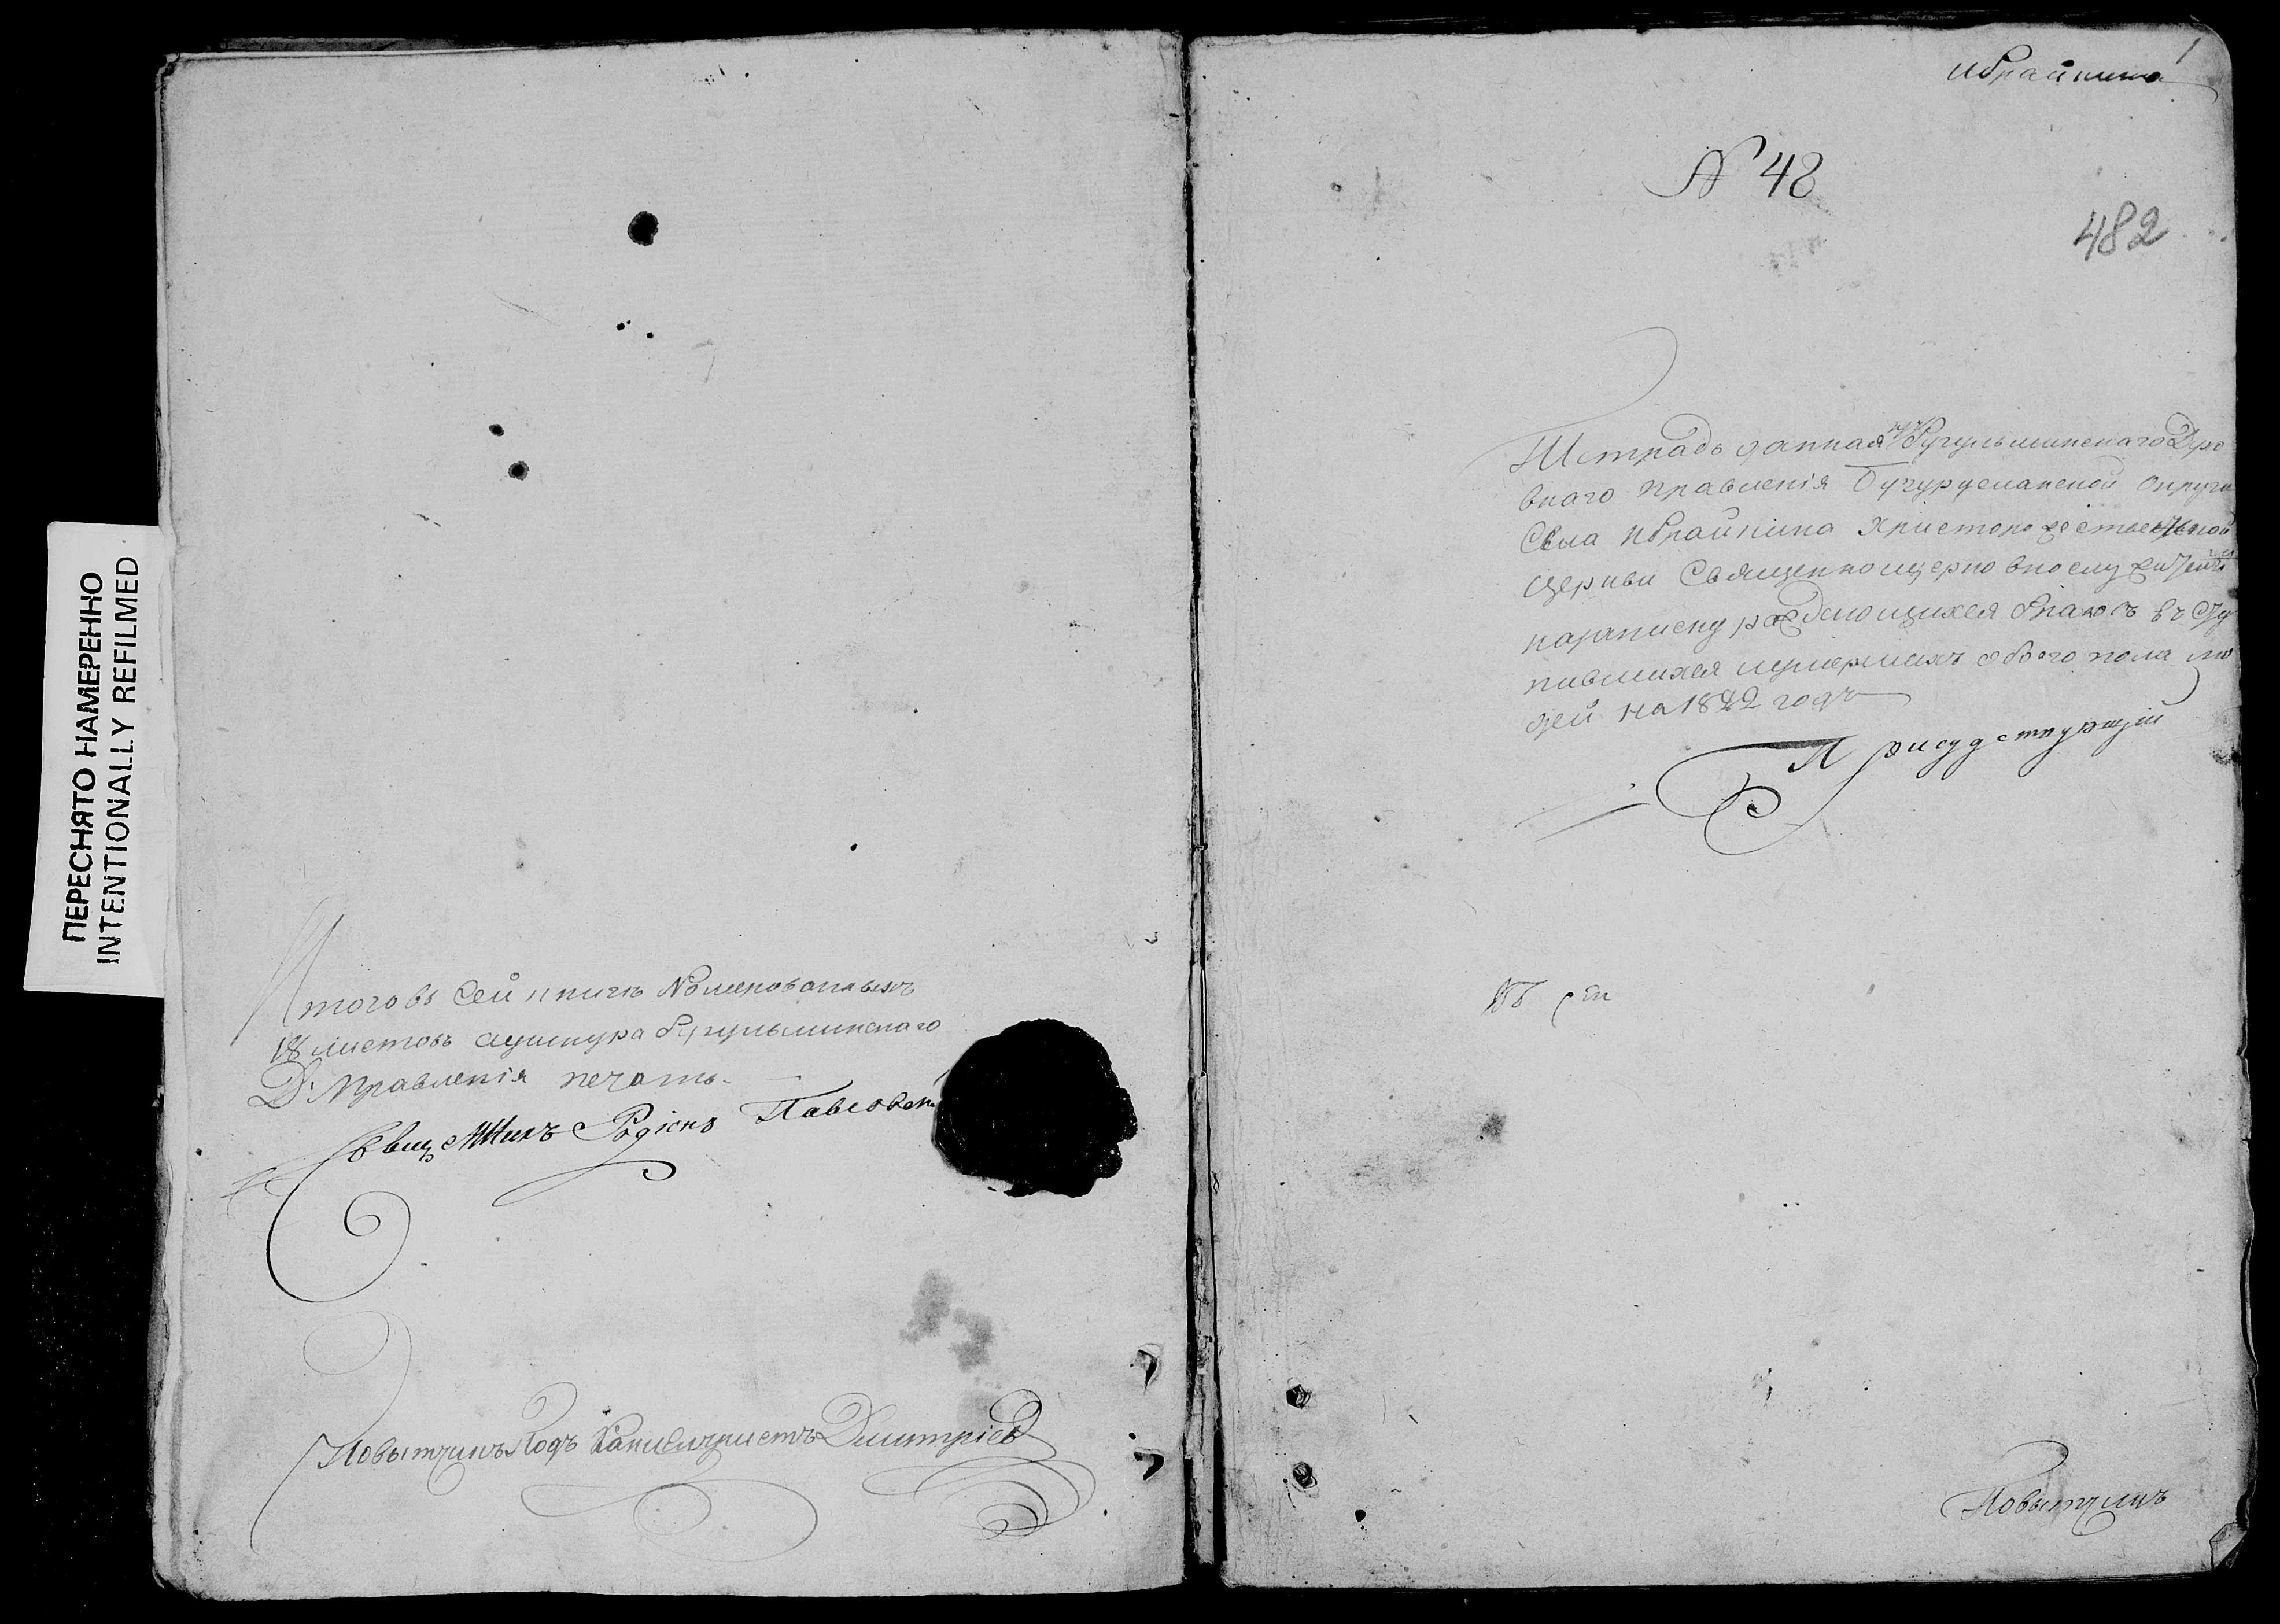 ПЕРЕСНЯТО НАМЕРЕННО
INTENTIONALLY REFILMED
Итого въ сей книгѣ номерованныхъ
18 листовъ аушнура бугульминскаго
Д. Правленія печать.
Свищенникъ Родіонъ Павловск
Повытчикъ Подъ Канцеляристъ Дмитріев
1
ибрайкина
N 48
482
Тетрадь данная изъ Бугульминскаго Духо
внаго правленія Бугурусланской округи
Села ибрайкина христорождественской
церкви Священноцерковнослужителямъ
назаписку раждающихся бракомъ въ сту
пившихся иумершихъ обоего пола лю
дей на 1822 годъ
Присудствующій
Повытчикъ